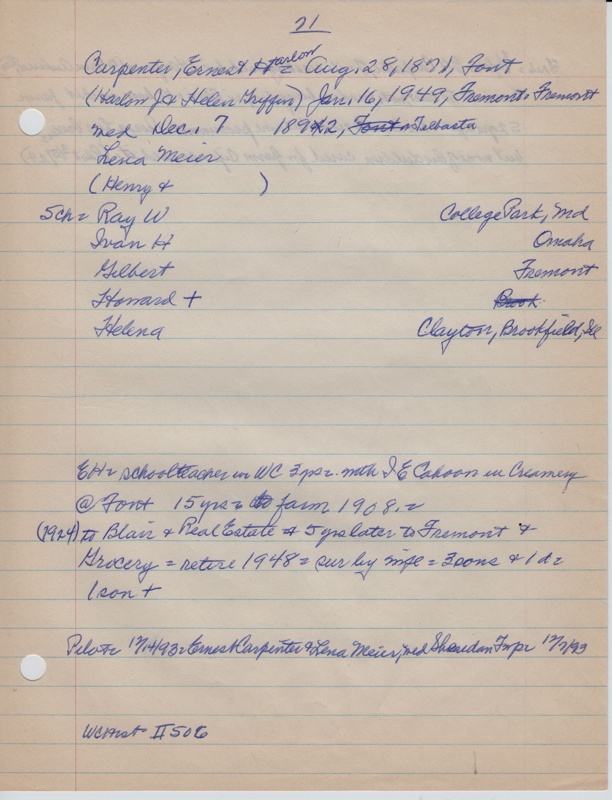 21
Carpenter, Ernest Harlow = Aug. 28, 1871, Font
(Harlow J & Helen Griffin) Jan. 16, 1949, Fremont = Fremont
med Dec. 7 1892, Font Telbasta
Lena Meier
(Henry & )
5ch = Ray W College Park, Md
Ivan H Omaha
Gilbert Fremont
Howard + Brook
Helena Clayton, Brookfield, Ill
EH = school teacher in WC 3 yrs = with I E Cahoon in Creamery
@ Font 15 yrs = to farm 1908. =
(1924) to Blair & Real Estate 5 yrs later to Fremont &
Grocery = retire 1948 = sur by wife = 3 sons & 1 d =
1 son +
Pilot = 12/14/93 = Ernest Carpenter & Lena Meier, med Sheridan Twp = 12/7/93
WC Hist II 506